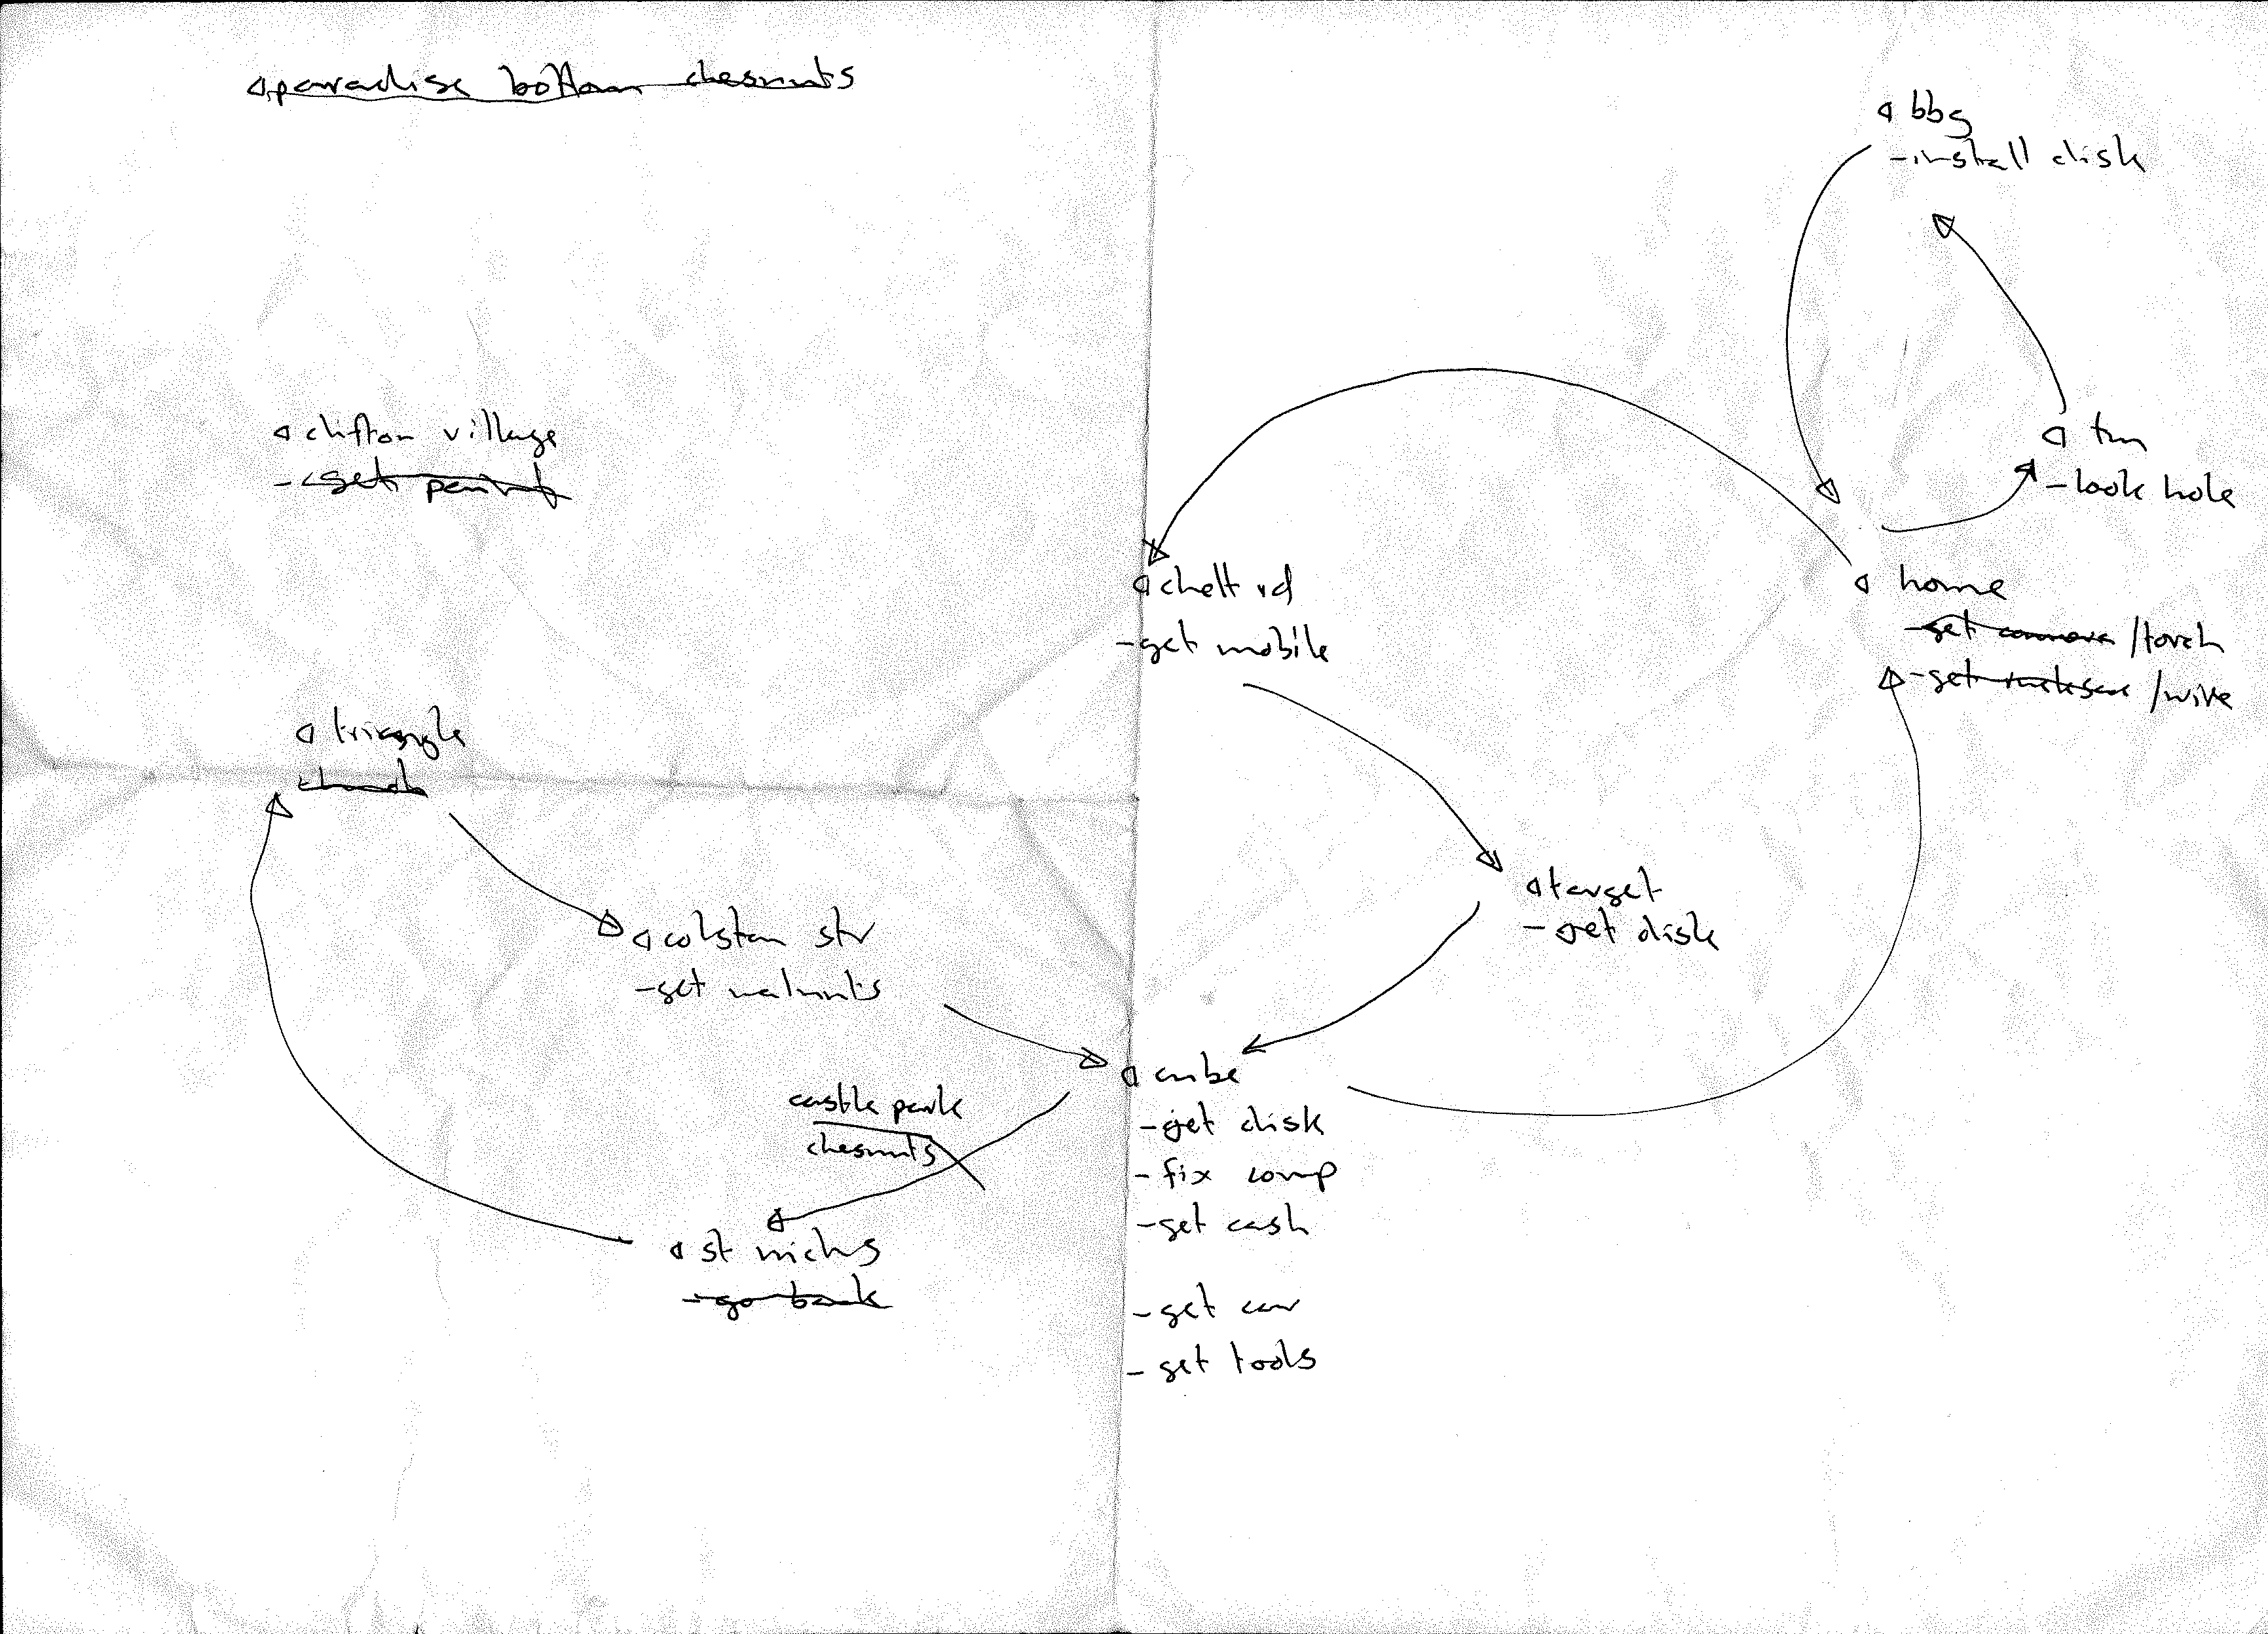 paradise bottom chesnuts
bbg
-install disk
clifton village
-get paint
tm
-look hole
chelt rd
-get mobile
home
-get camera /torch
-get /wire
triangle
target
-get disk
colston str
-get walnuts
cube
-get disk
-fix comp
-get cash
-get car
-get tools
castle park
chesnuts
st nichs
-go bank